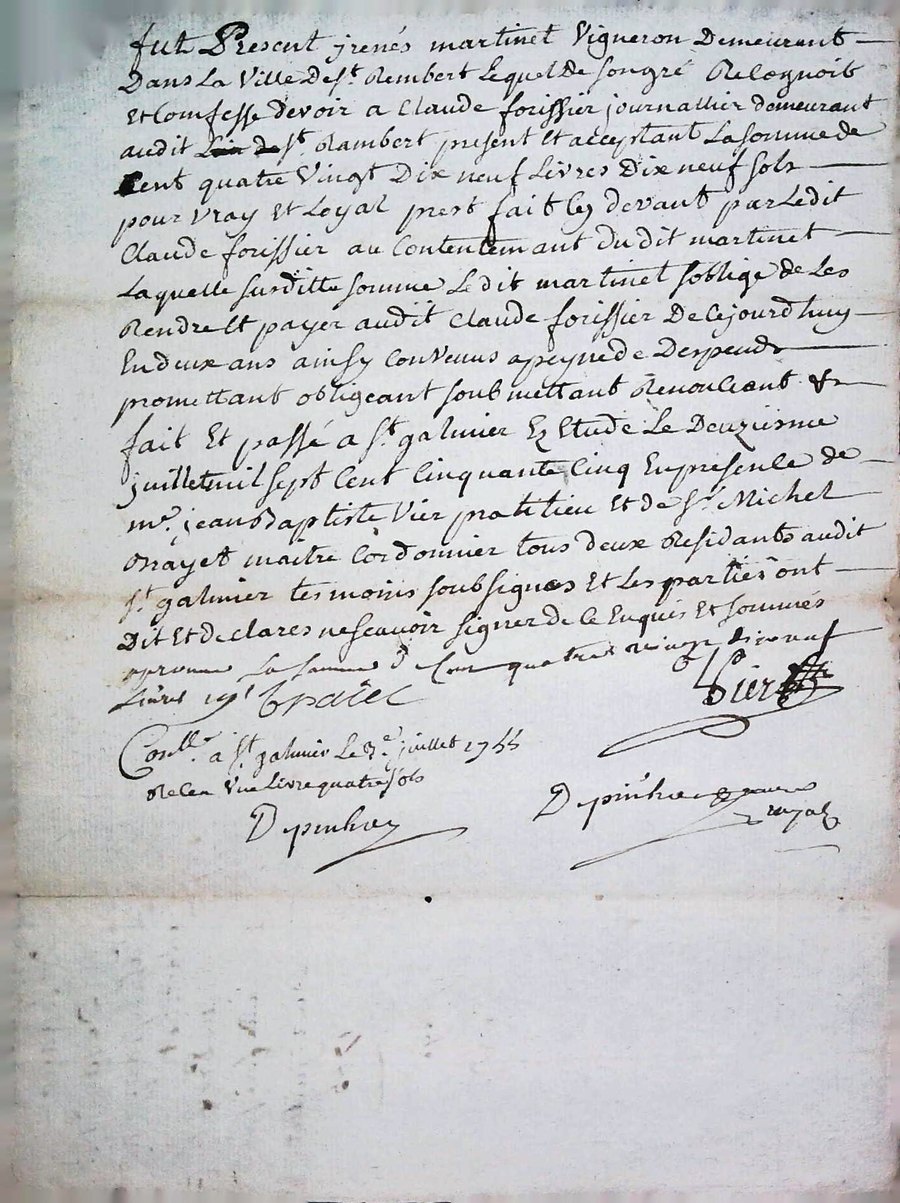 fut Present jrenés martinet Vigneron Demeurant
Dans La Ville de st Rembert Lequel de son gré Recognoit
Et Comfesse devoir a Claude forissier journallier demeurant
audit st Rambert present Et acceptant La somme de
Cent quatre Vingt Dix neuf Livres Dix neuf sols
pour Vray Et Loyal prest fait Cy devant par Ledit
Claude forissier au Contentemant du dit martinet
Laquelle susditte somme Le dit martinet soblige de Les
Rendre Et payer audit Claude forissier De Cejourdhuy
En deux ans ainsy Convenus a peyne de Despends
promettant obligeant soubmettant Renonceant &c
fait Et passé a st galmier Ez Etude Le Deuziesme
juillet mil sept Cent Cinquante Cinq En presence de
mr. jean Baptiste Vier pratitien Et de sr. Michel
maitre Cordonnier tous deux Residants audit
st. galmier tesmoins soubsignés Et Les parties ont
Dit Et declares ne scavoir signer de Ce Enquis Et sommés
La somme de Cent quatre vingt dix neuf
Livres 19s
Vier
Conllé a st. galmier Le 3e. juillet 1755
Receu Une Livre quatre sols
Depinhac
Depinhac
royal